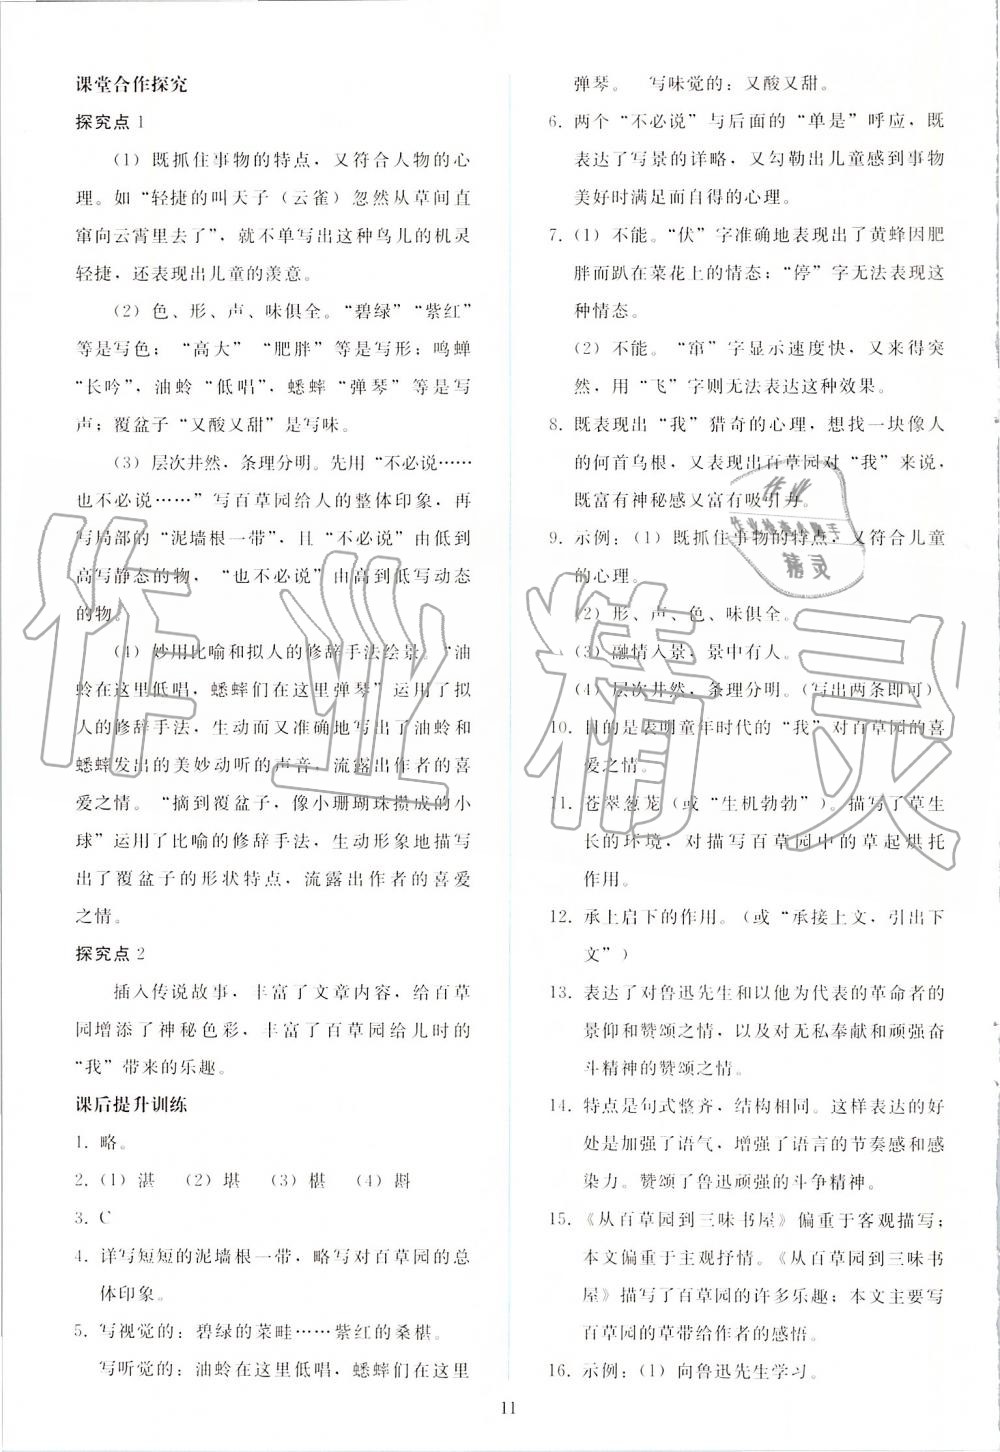 课堂合作探究
探究点 1
（1）既抓住事物的特点，又符合人物的心
理。如“轻捷的叫天子（云雀）忽然从草间直
窜向云霄里去了”，就不单写出这种鸟儿的机灵
轻捷，还表现出儿童的羡意。
（2）色、形、声、味俱全。“碧绿”“紫红”
等是写色；“高大”“肥胖”等是写形；鸣蝉
“长吟”，油蛉“低唱”，蟋蟀“弹琴”等是写
声；覆盆子“又酸又甜”是写味。
（3）层次井然，条理分明。先用“不必说……
也不必说……”写百草园给人的整体印象，再
写局部的“泥墙根一带”，且“不必说”由低到
高写静态的物，“也不必说”由高到低写动态
的物。
（4）妙用比喻和拟人的修辞手法绘景。“油
蛉在这里低唱，蟋蟀们在这里弹琴”运用了拟
人的修辞手法，生动而又准确地写出了油蛉和
蟋蟀发出的美妙动听的声音，流露出作者的喜
爱之情。“摘到覆盆子，像小珊瑚珠攒成的小
球”运用了比喻的修辞手法，生动形象地描写
出了覆盆子的形状特点，流露出作者的喜爱
之情。
探究点 2
插入传说故事，丰富了文章内容，给百草
园增添了神秘色彩，丰富了百草园给儿时的
“我”带来的乐趣。
课后提升训练
1. 略。
2.（1）湛 （2）堪 （3）椹 （4）斟
3. C
4. 详写短短的泥墙根一带，略写对百草园的总
体印象。
5. 写视觉的：碧绿的菜畦……紫红的桑椹。
写听觉的：油蛉在这里低唱，蟋蟀们在这里
弹琴。 写味觉的：又酸又甜。
6. 两个“不必说”与后面的“单是”呼应，既
表达了写景的详略，又勾勒出儿童感到事物
美好时满足而自得的心理。
7.（1）不能。“伏”字准确地表现出了黄蜂因肥
胖而趴在菜花上的情态；“停”字无法表现这
种情态。
（2）不能。“窜”字显示速度快，又来得突
然，用“飞”字则无法表达这种效果。
8. 既表现出“我”猎奇的心理，想找一块像人
的何首乌根，又表现出百草园对“我”来说，
既富有神秘感又富有吸引力。
9. 示例：（1）既抓住事物的特点，又符合儿童
的心理。
（2）形、声、色、味俱全。
（3）融情入景，景中有人。
（4）层次井然，条理分明。（写出两条即可）
10. 目的是表明童年时代的“我”对百草园的喜
爱之情。
11. 苍翠葱茏（或“生机勃勃”）。描写了草生
长的环境，对描写百草园中的草起烘托
作用。
12. 承上启下的作用。（或“承接上文，引出下
文”）
13. 表达了对鲁迅先生和以他为代表的革命者的
景仰和赞颂之情，以及对无私奉献和顽强奋
斗精神的赞颂之情。
14. 特点是句式整齐，结构相同。这样表达的好
处是加强了语气，增强了语言的节奏感和感
染力。赞颂了鲁迅顽强的斗争精神。
15. 《从百草园到三味书屋》偏重于客观描写；
本文偏重于主观抒情。《从百草园到三味书
屋》描写了百草园的许多乐趣；本文主要写
百草园的草带给作者的感悟。
16. 示例：（1）向鲁迅先生学习。
11
作业精灵
作业
精灵